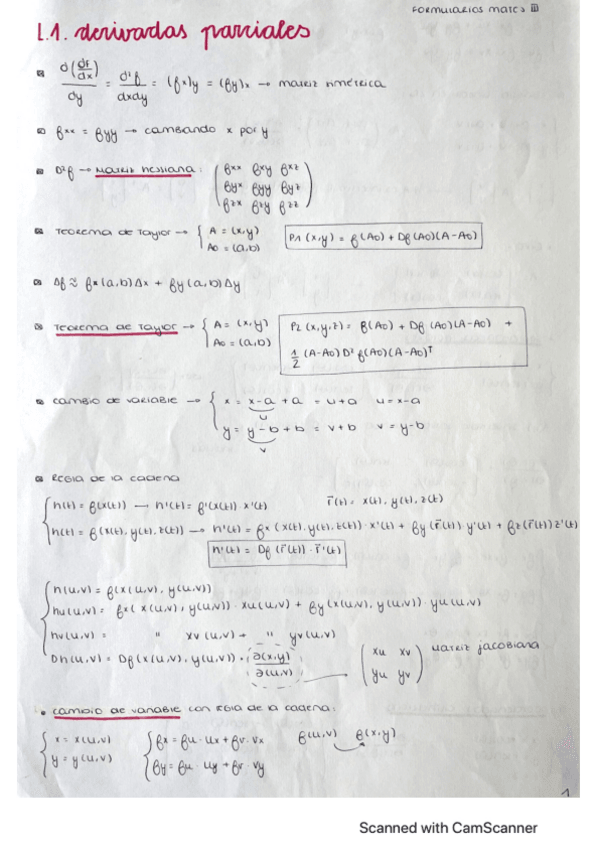 FORMULARIOS MATES III
L.1. derivadas parciales
d(df/dx)/dy = d²f/dxdy = (fx)y = (fy)x → matriz simétrica
fxx = fyy → cambiando x por y
D²f → MATRIZ HESSIANA: ( fxx fxy fxz
fyx fyy fyz
fzx fzy fzz )
Teorema de Taylor → { A = (x,y) P1 (x,y) = f(A0) + Df(A0)(A-A0)
A0 = (a,b)
Δf ≈ fx(a,b)Δx + fy(a,b)Δy
Teorema de Taylor → { A = (x,y) P2 (x,y,z) = f(A0) + Df(A0)(A-A0) +
A0 = (a,b) 1/2 (A-A0) D² f(A0)(A-A0)ᵀ
cambio de variable → { x = x-a + a = u+a u = x-a
u
y = y-b + b = v+b v = y-b
v
Regla de la cadena
h(t) = f(x(t)) → h'(t) = f'(x(t)) · x'(t) r̄(t) = x(t), y(t), z(t)
h(t) = f(x(t), y(t), z(t)) → h'(t) = fx (x(t), y(t), z(t)) · x'(t) + fy (r̄(t)) y'(t) + fz (r̄(t)) z'(t)
h'(t) = Df (r̄(t)) · r̄'(t)
h(u,v) = f(x(u,v), y(u,v))
hu(u,v) = fx( x(u,v), y(u,v)) · xu(u,v) + fy (x(u,v), y(u,v)) · yu(u,v)
hv(u,v) = " xv (u,v) + " yv(u,v)
Dh(u,v) = Df(x(u,v), y(u,v)) · ∂(x,y)/∂(u,v) → ( xu xv
yu yv ) Matriz jacobiana
cambio de variable con regla de la cadena:
x = x(u,v) fx = fu · ux + fv · vx f(u,v) f(x,y)
y = y(u,v) fy = fu · uy + fv · vy
1
Scanned with CamScanner